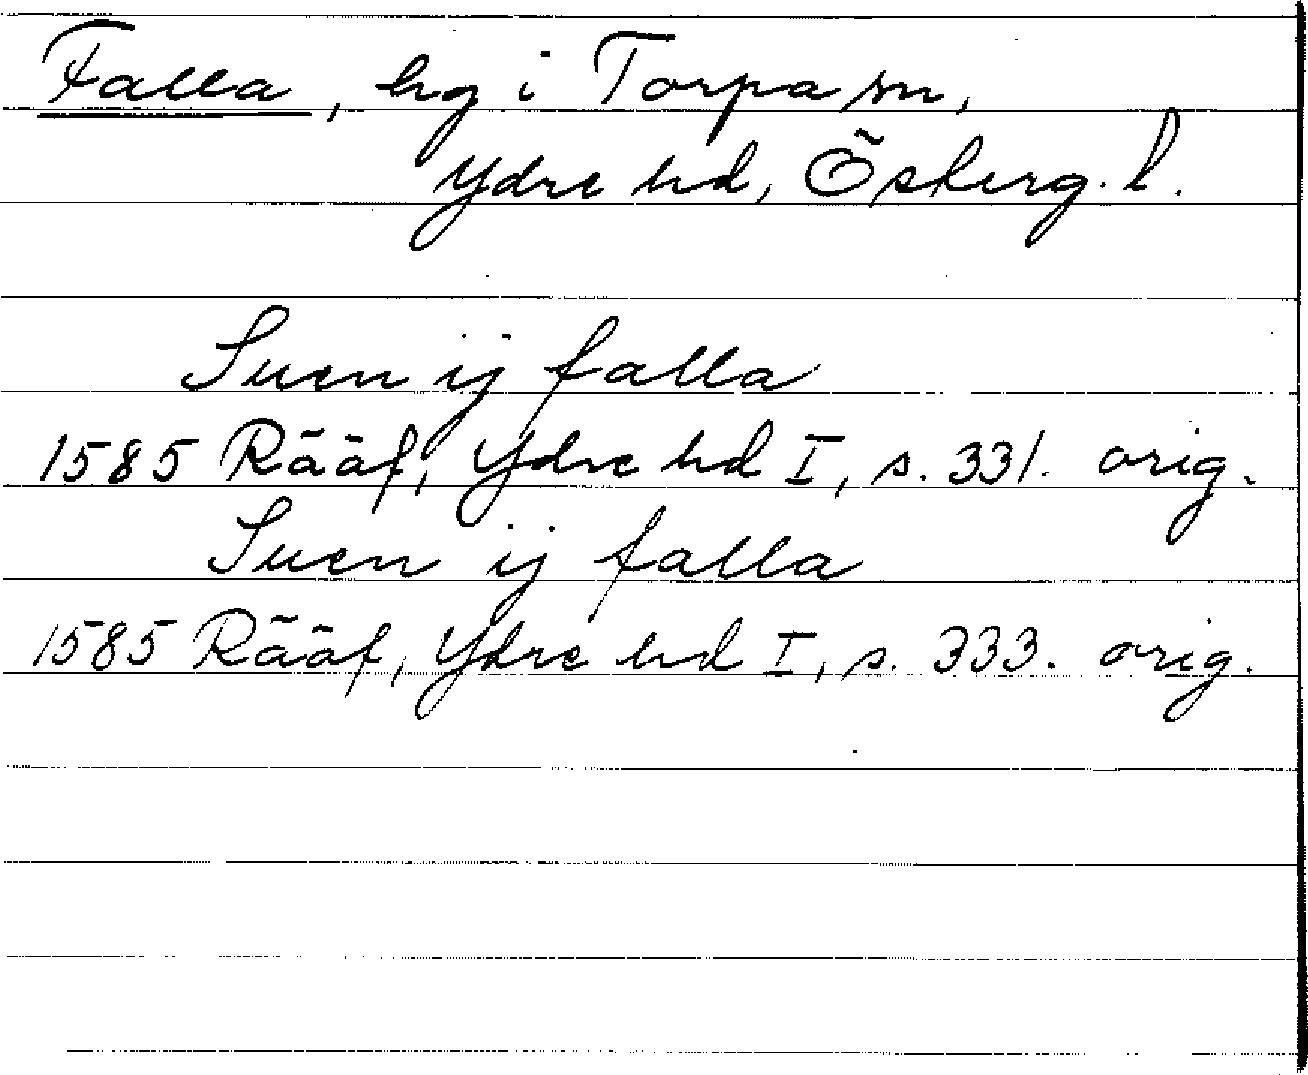 Falla, hg i Torpa sn,
Ydre hd, Österg. l.
Suen ij falla
1585 Rääf, Ydre hd I, s. 331. orig.
Suen ij falla
1585 Rääf, Ydre hd I, s. 333. orig.